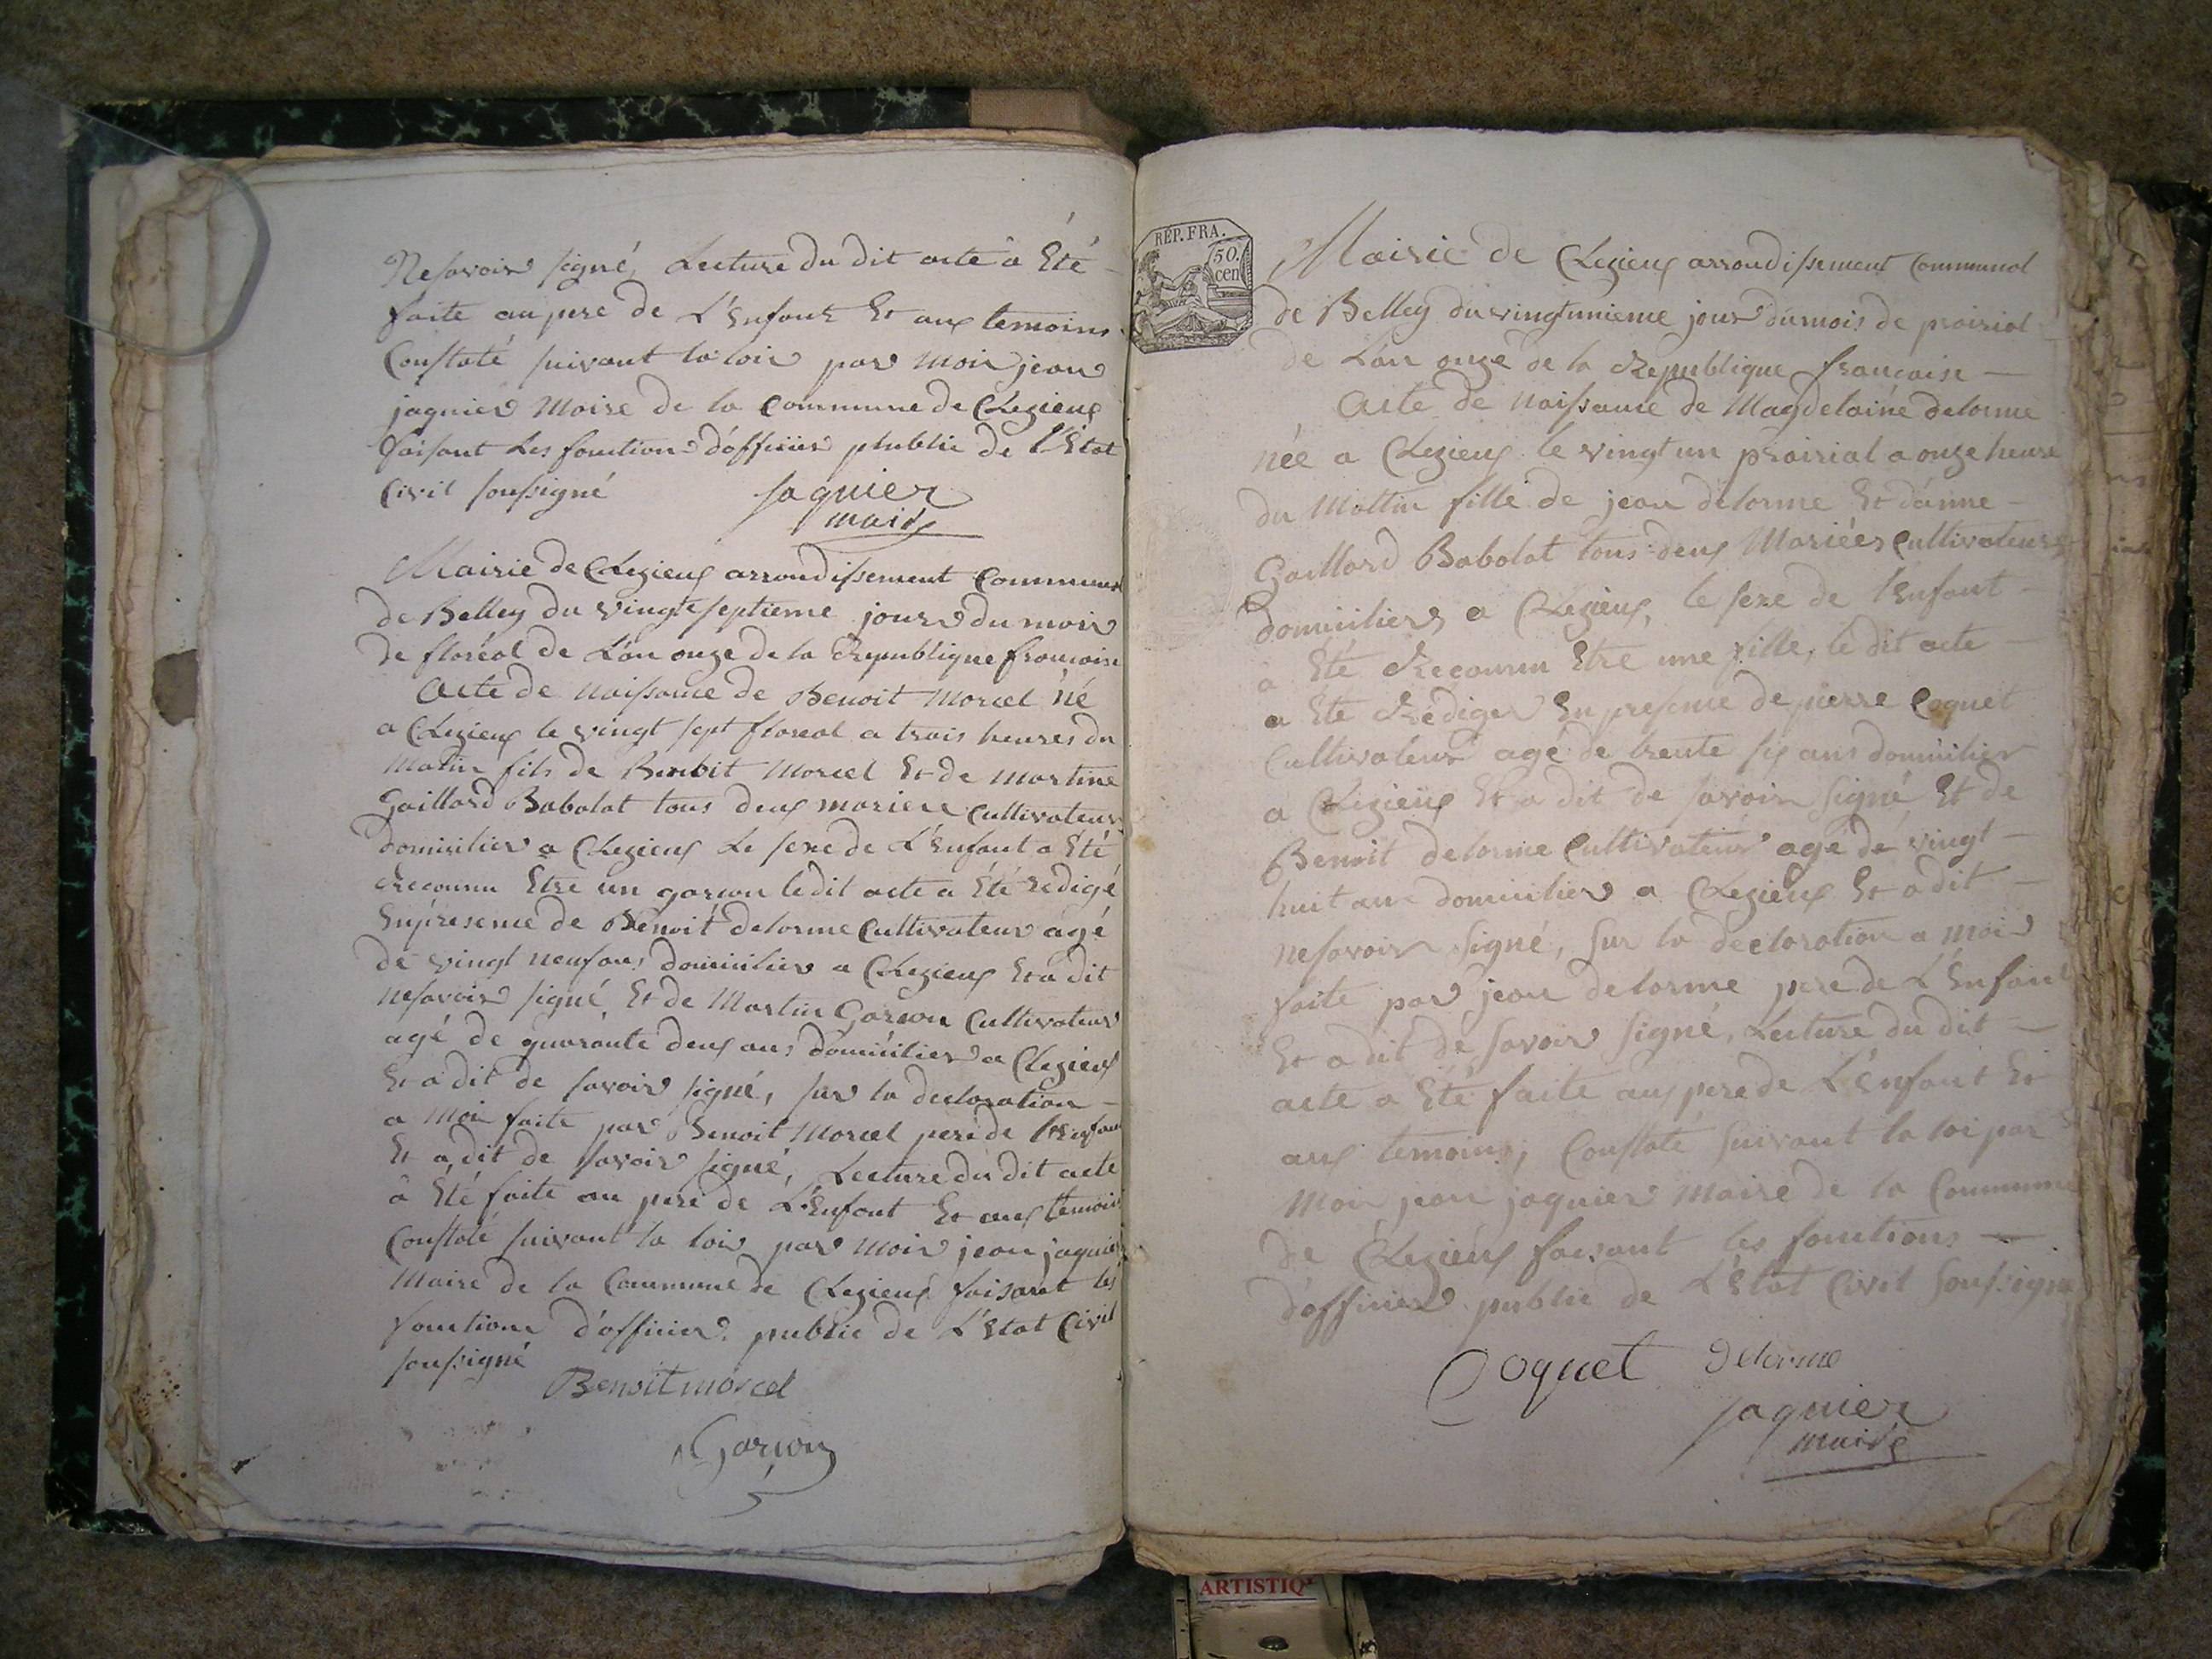 Nesavoir signé, Lecture du dit acte â Été
faite au pere de L'Enfant Et aux temoins
Constaté suivant la loix par Moi jean
jaquier Maire de la Commune de Chezieux
faisant Les fonction d'officier plublic de l'Etat
Civil soussigné
jaquier
maire
Mairie de Chezieux arrondissement Communal
de Belley du vingt septieme jour du mois
de floréal de L'an onze de la Republique francoise
Acte de naissance de Benoit Morcel né
a Chezieux le vingt sept floreal a trois heures du
Matin fils de Benoit Morcel Et de Martine
Gaillard Babolat tous deux marier Cultivateurs
domicilier a Chezieux Le sexe de L'Enfant a Été
Reconnu Etre un garson ledit acte a Été redigé
Enpresence de Benoit delorme Cultivateur agé
de vingt neuf ans domicilier a Chezieux Et a dit
nesavoir signé, Et de Martin Garson Cultivateur
agé de quarante deux ans domicilier a Chezieux
Et a dit de savoir signé, sur la declaration
a Moi faite par Benoit Morcel pere de l'Enfant
Et a dit de savoir signé, Lecture du dit acte
â Été faite au pere de L'Enfant Et aux temoins
Constaté suivant la loix par Moi jean jaquier
Maire de la Commune de Chezieux faisant les
fonctions d'officier public de L'Etat Civil
soussigné
Benoit morcel
Garson
REP. FRA.
50.
cen
Mairie de Chezieux arrondissement Communal
de Belley du vingtunieme jour du mois de prairial
de L'an onze de la Republique francaise
Acte de Naissance de Magdelaine delorme
née a Chezieux le vingt un prairial a onze heure
du Mattin fille de jean delorme Et d'anne
Gaillard Babolat tous deux Mariées Cultivateurs
domiciliers a Chezieux, le sexe de l'Enfant
a Été Reconnu Etre une fille, le dit acte
a Été Rédiger En presence de pierre Coquet
Cultivateur agé de trente six ans domicilier
a Chezieux Et a dit de savoir signé Et de
Benoit delorme Cultivateur agé de vingt
huit ans domicilier a Chezieux Et a dit
nesavoir signé, sur la declaration a moi
faite par jean delorme pere de L'Enfant
Et a dit de savoir signé, Lecture du dit
acte a Été faite aux pere de L'enfant Et
aux temoins, Constaté suivant la loi par
Moi jean jaquier Maire de la Commune
de Chezieux faisant les fonctions
d'officier public de L'Etat Civil soussigné
Coquet Delorme
jaquier
maire
ARTISTIQ